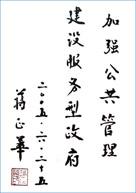 加强公共管理
建设服务型政府
二〇〇五·六·二十五
蒋正华